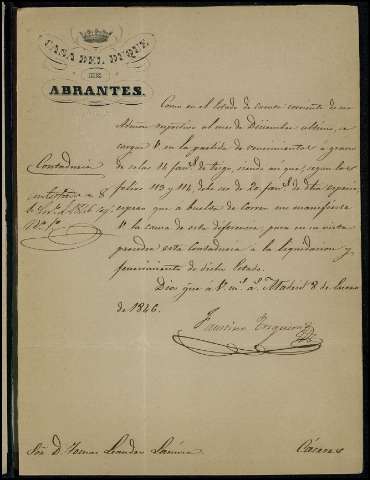 CASA DEL DUQUE
DE
ABRANTES.
Contaduría
Como en el Estado de cuenta corriente de esa
Admon respectivo al mes de Diciembre ultimo, se
cargue V. en la partida de vencimientos á granos
de solas 14 fans. de trigo, siendo así que, segun los
folios 113 y 114, debe ser de 20 fans. de dha especie,
espero que á buelta de correo me manifieste
V. la causa de esta diferencia, para en su vista
proceder esta contaduria á la liquidacion y
fenecimiento de dicho Estado.
Dios gue á V. ms. as. Madrid 8 de Enero
de 1846.
Faustino
Sor. D. Tomas Leandro
Cáceres